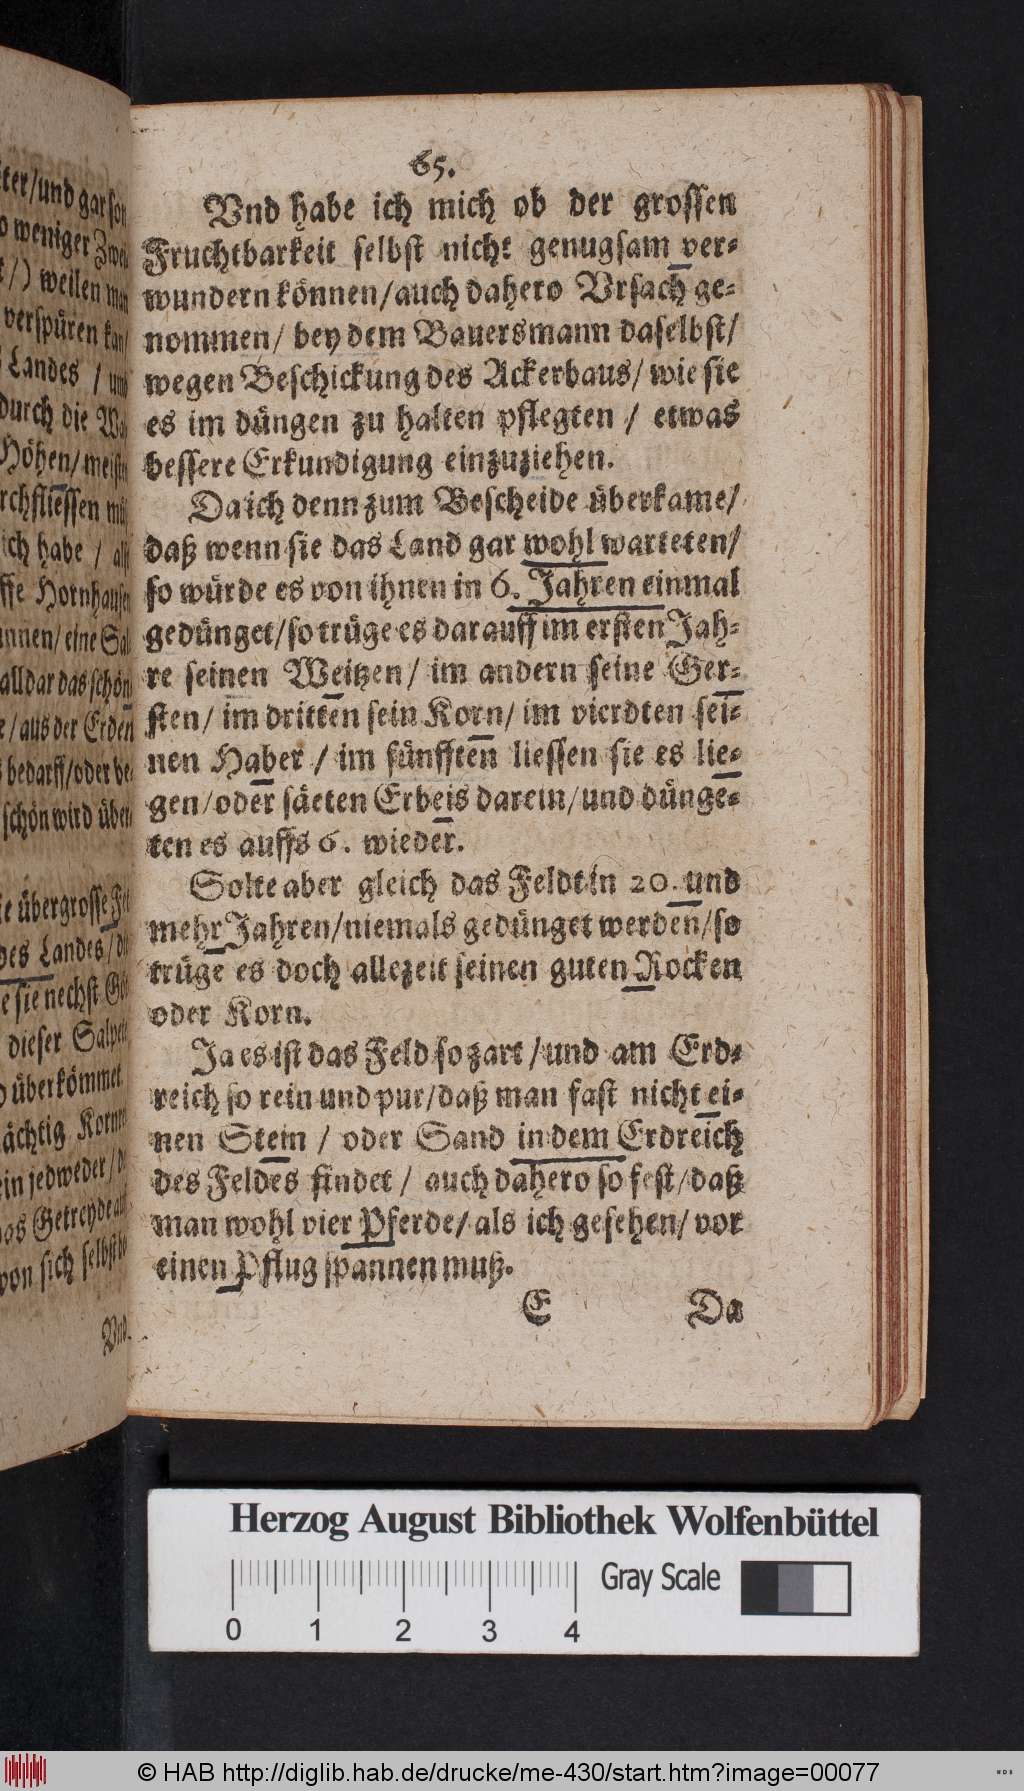 65.
Vnd habe ich mich ob der grossen
Fruchtbarkeit selbst nicht genugsam ver-
wundern können/auch dahero Vrsach ge-
nommen/ bey dem Bauersmann daselbst/
wegen Beschickung des Ackerbaus/ wie sie
es im düngen zu halten pflegten / etwas
bessere Erkundigung einzuziehen.
Da ich denn zum Bescheide überkame/
daß wenn sie das Land gar wohl warteten/
so würde es von ihnen in 6. Jahren einmal
gedünget/so trüge es darauff im ersten Jah-
re seinen Weitzen/ im andern seine Ger-
sten/ im dritten sein Korn/ im vierdten sei-
nen Haber / im fünfften liessen sie es lie-
gen/oder säeten Erbeis darein/und dünge-
ten es auffs 6. wieder.
Solte aber gleich das Feldt in 20. und
mehr Jahren/niemals gedünget werden/so
trüge es doch allezeit seinen guten Rocken
oder Korn.
Ja es ist das Feld so zart/und am Erd-
reich so rein und pur/daß man fast nicht ei-
nen Stein / oder Sand in dem Erdreich
des Feldes findet / auch dahero so fest/daß
man wohl vier Pferde/als ich gesehen/ vor
einen Pflug spannen muß.
E Da
ter/und gar
weniger
/) weilen man
verspüren kan/
Landes /
durch die
Höhen/
ich habe /
alldar das schön
/aus der Erden
bedarff/oder be-
schön wird über
übergrosse
des Landes/
sie nechst
dieser
überkömmet
jedweder/
Getreyde
von sich selbst
Vnd
Herzog August Bibliothek Wolfenbüttel
Gray Scale
0 1 2 3 4
© HAB http://diglib.hab.de/drucke/me-430/start.htm?image=00077